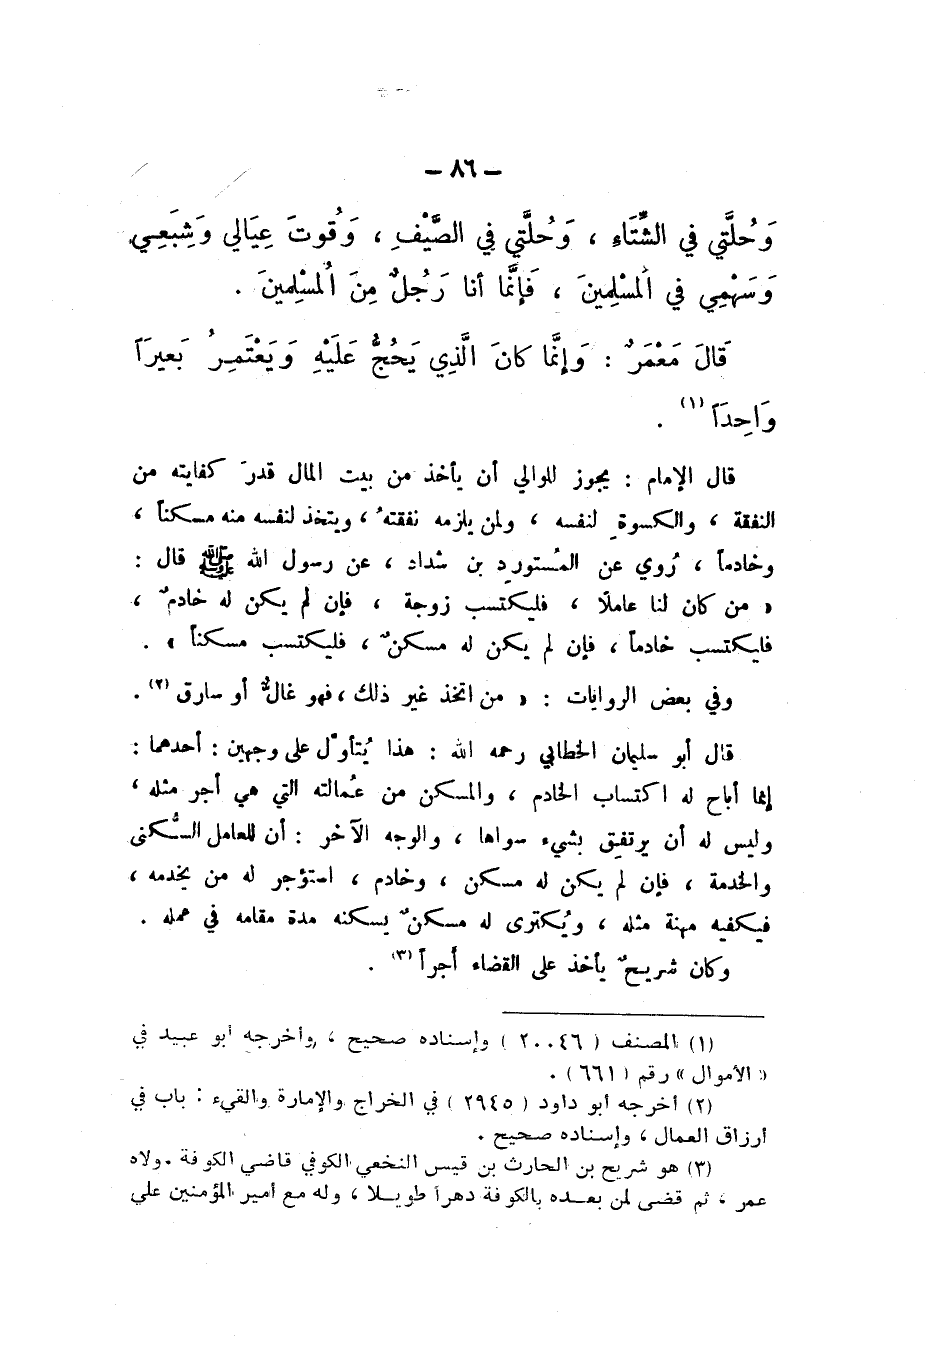 - ٨٦ -
وَحُلَّتي في الشِّتَاءِ ، وَحُلَّتي في الصَّيْفِ ، وَقُوتَ عِيَالي وَشِبَعِي،
وَسَهْمِي في الْمسْلِمينَ ، فَإنَّما أنا رَجُلٌ مِنَ الْمسْلِمينَ .
قَالَ مَعْمَرٌ : وَإنَّما كانَ الَّذِي يَحُجُّ عَلَيْهِ وَيَعْتَمِرُ بَعيرَاً
وَاحِدَاً (١) .
قال الإمام : يجوز للوالي أن يأخذ من بيت المال قدرَ كفايته من
النفقة ، والكسوةِ لنفسه ، ولمن يلزمه نفقتهُ ، ويتخذ لنفسه منه مسكناً ،
وخادماً ، رُوي عن المُستوردِ بن شداد ، عن رسول الله ﷺ قال :
« من كان لنا عاملًا ، فليكتسب زوجة ، فإن لم يكن له خادمٌ ،
فليكتسب خادماً ، فإن لم يكن له مسكنٌ ، فليكتسب مسكناً » .
وفي بعض الروايات : « من اتخذ غير ذلك ، فهو غالٌّ أو سارق (٢) .
قال أبو سليمان الخطابي رحمه الله : هذا يُتأوّل على وجهين : أحدهما :
إنما أباح له اكتساب الخادم ، والمسكن من عُمالته التي هي أجر مثله ،
وليس له أن يرتفق بشيء سواها ، والوجه الآخر : أن للعامل السُّكنى
والخدمة ، فإن لم يكن له مسكن ، وخادم ، استؤجر له من يخدمه ،
فيكفيه مهنة مثله ، ويُكترى له مسكنٌ يسكنه مدة مقامه في عمله .
وكان شريحٌ يأخذ على القضاء أجراً (٣) .
(١) المصنف ( ٢٠٠٤٦ ) وإسناده صحيح ، وأخرجه أبو عبيد في
« الأموال » رقم ( ٦٦١ ) .
(٢) أخرجه أبو داود ( ٢٩٤٥ ) في الخراج والإمارة والفيء : باب في
أرزاق العمال ، وإسناده صحيح .
(٣) هو شريح بن الحارث بن قيس النخعي الكوفي قاضي الكوفة . ولاه
عمر ، ثم قضى لمن بعده بالكوفة دهراً طويلا ، وله مع أمير المؤمنين علي